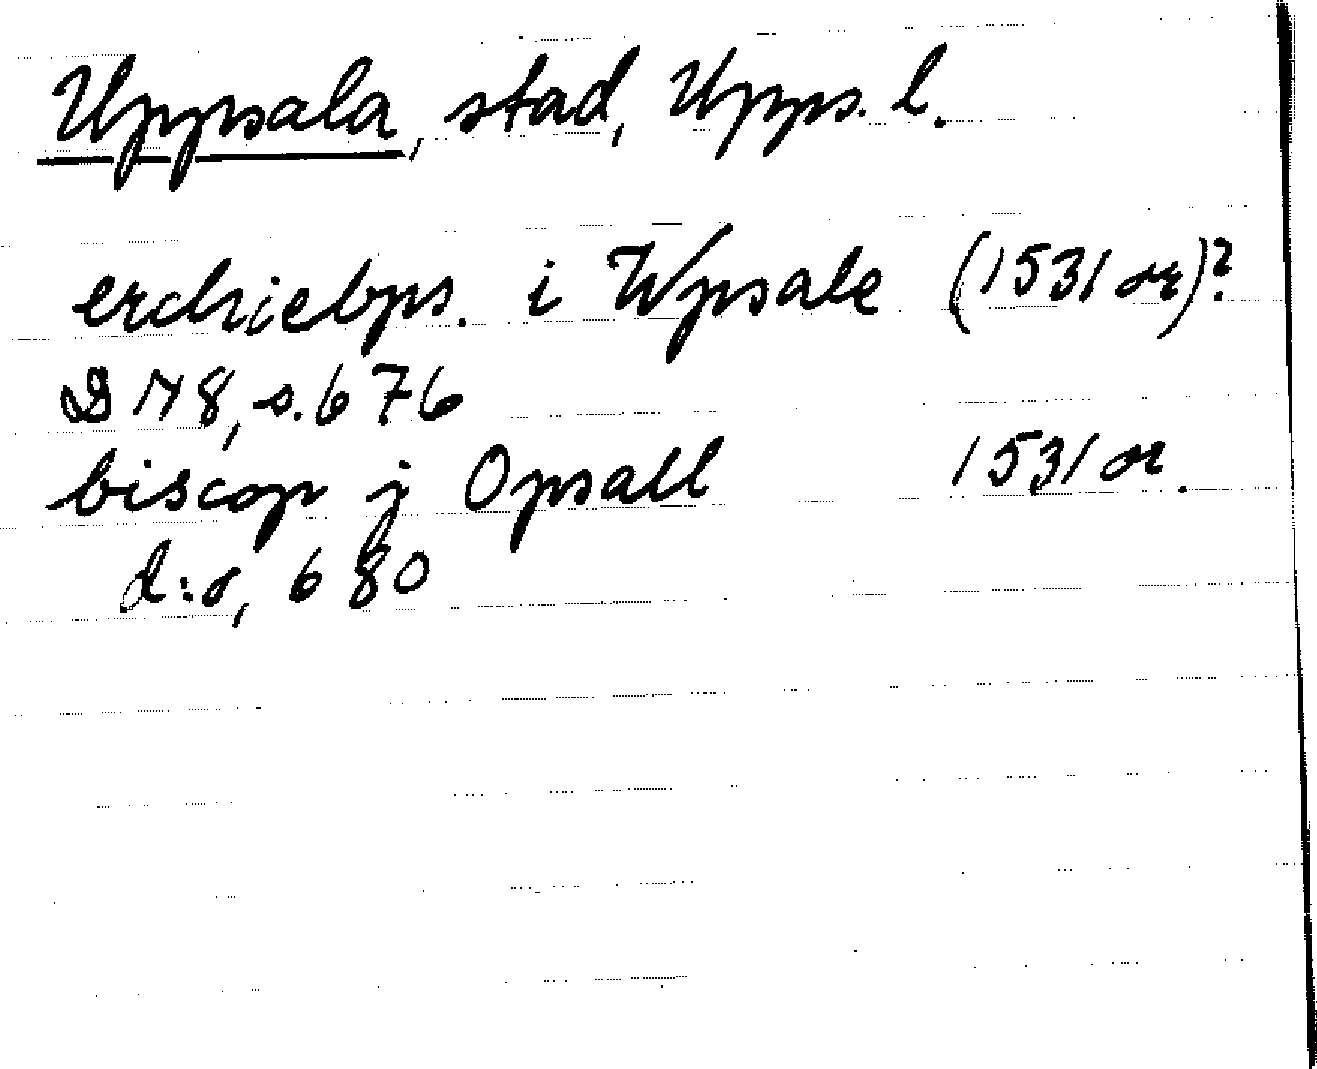 Uppsala, stad, Upps. l.
erchiebps. i Wpsale (1531 or)?
DN 8, s. 676
biscop j Opsall 1531 or.
d:o, 680